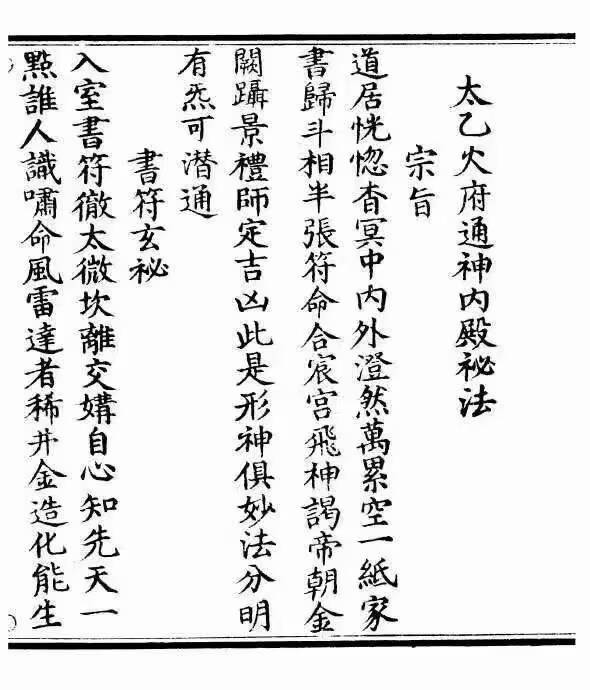 太乙火府通神内殿祕法
宗旨
道居恍惚杳冥中内外澄然萬累空一紙家
書歸斗相半張符命合宸宮飛神謁帝朝金
闕躡景禮師定吉凶此是形神俱妙法分明
有炁可潜通
書符玄祕
入室書符徹太微坎離交媾自心知先天一
點誰人識嘯命風雷達者稀井金造化能生